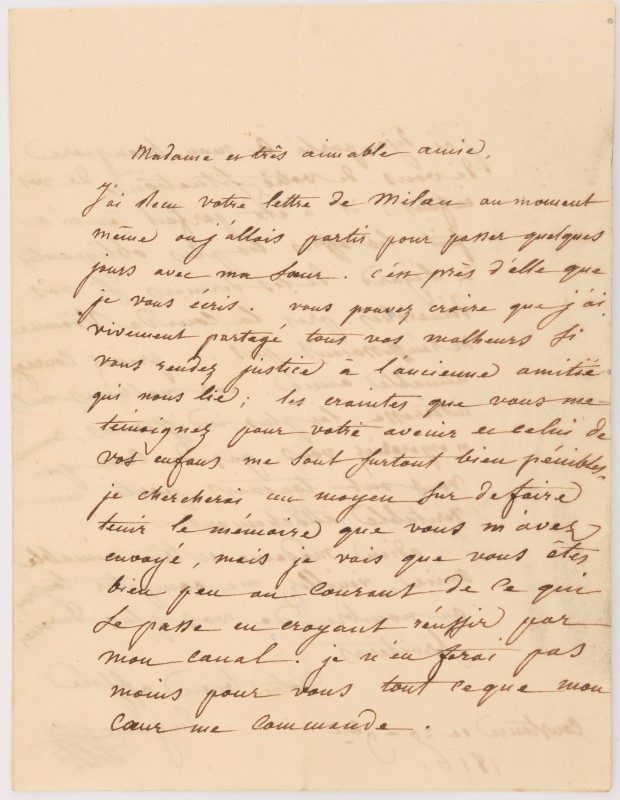 Madame et très aimable amie,
J'ai Recu votre lettre de Milan au moment
même ou j'allois partir pour passer quelques
jours avec ma Sœur. c'est près d'elle que
je vous écris. vous pouvez croire que j'ai
vivement partagé tous vos malheurs si
vous rendez justice à l'ancienne amitié
qui nous lie; les craintes que vous me
témoignez pour votre avenir et celui de
vos enfans me sont surtout bien pénibles,
je chercherai un moyen sur de faire
tenir le mémoire que vous m'avez
envoyé, mais je vois que vous êtes
bien peu au courant de ce qui
se passe en croyant réussir par
mon canal. je n'en ferai pas
moins pour vous tout ce que mon
cœur me commande.